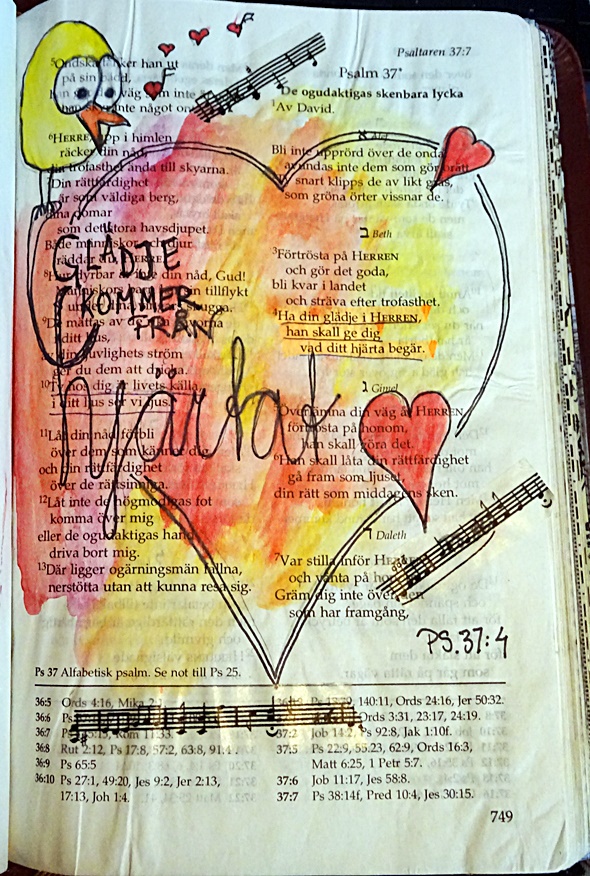 Psaltaren 37:7
⁵Ondska tänker han ut
på sin bädd,
väg som inte
inte något
⁶HERRE, upp i himlen
räcker din nåd,
din trofasthet ända till skyarna.
⁷Din rättfärdighet
är som väldiga berg,
dina domar
som det stora havsdjupet.
Både människor och djur
räddar du, HERRE.
⁸Hur dyrbar är inte din nåd, Gud!
Människors barn tin tillflykt
under dina vingars skugga.
⁹De mättas av de
ditt hus,
din ljuvlighets ström
ger du dem att dricka.
¹⁰Ty hos dig är livets källa,
i ditt ljus ser vi ljus.
¹¹Låt din nåd förbli
över dem som känner dig
och din rättfärdighet
över de rättsinniga.
¹²Låt inte de högmodigas fot
komma över mig
eller de ogudaktigas hand
driva bort mig.
¹³Där ligger ogärningsmän fallna,
nerstötta utan att kunna resa sig.
GLÄDJE
KOMMER
FRÅN
hjärtat
Psalm 37*
De ogudaktigas skenbara lycka
¹Av David.
א Alef
Bli inte upprörd över de onda,
avundas inte dem som gör orätt
snart klipps de av likt gräs,
som gröna örter vissnar de.
ב Beth
³Förtrösta på HERREN
och gör det goda,
bli kvar i landet
och sträva efter trofasthet.
⁴Ha din glädje i HERREN,
han skall ge dig
vad ditt hjärta begär.
ג Gimel
⁵Överlämna din väg åt HERREN,
förtrösta på honom,
han skall göra det.
⁶Han skall låta din rättfärdighet
gå fram som ljuset,
din rätt som middagens sken.
ד Daleth
⁷Var stilla inför HERREN
och vänta på honom
Gräm dig inte över den
som har framgång,
PS.37:4
Ps 37 Alfabetisk psalm. Se not till Ps 25.
36:5 Ords 4:16, Mika 2:1.
36:6 Ps
36:7 Ps Rom 11:33.
36:8 Rut 2:12, Ps 17:8, 57:2, 63:8, 91:4.
36:9 Ps 65:5
36:10 Ps 27:1, 49:20, Jes 9:2, Jer 2:13,
17:13, Joh 1:4.
140:11, Ords 24:16, Jer 50:32.
Ords 3:31, 23:17, 24:19.
37:2 Job 14:2, Ps 92:8, Jak 1:10f.
37:5 Ps 22:9, 55:23, 62:9, Ords 16:3,
Matt 6:25, 1 Petr 5:7.
37:6 Job 11:17, Jes 58:8.
37:7 Ps 38:14f, Pred 10:4, Jes 30:15.
749